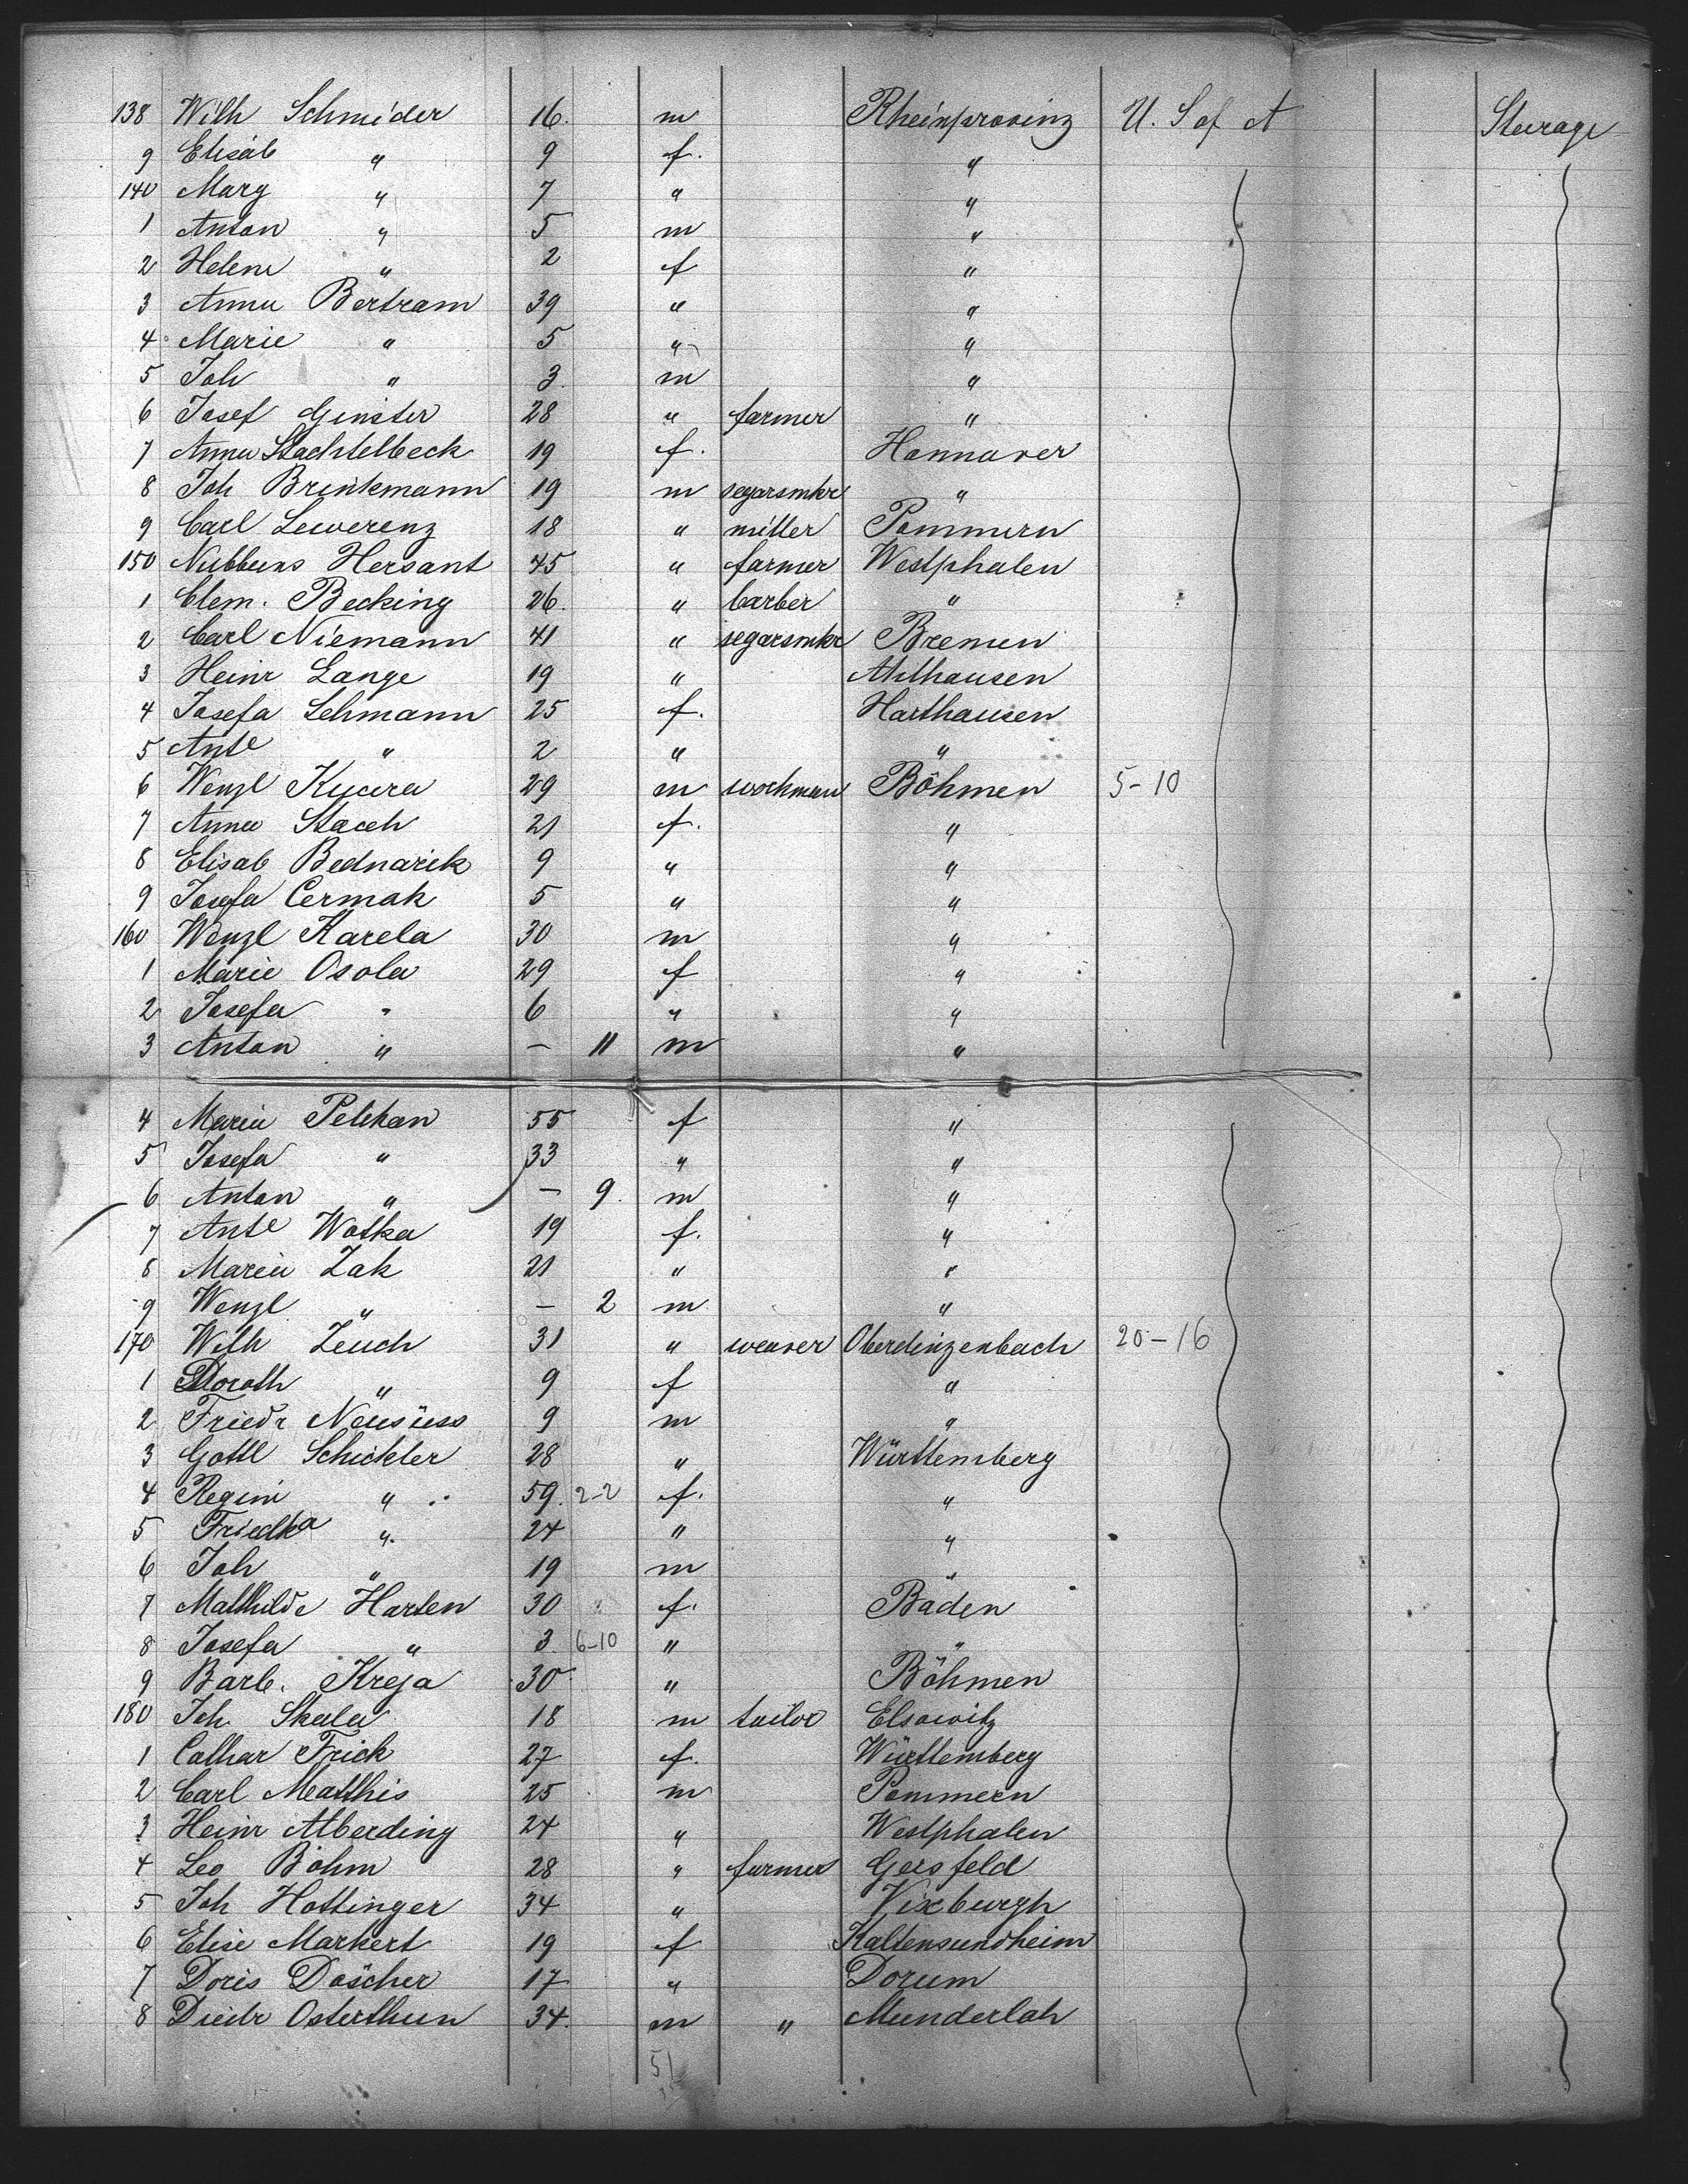 138 Wilh Schmider 16. m Rheinprovinz U. S of A Steerage
9 Elisab " 9 f. "
140 Marg " 7 " "
1 Anton " 5 m "
2 Helene " 2 f "
3 Anna Bertram 39 " "
4 Marie " 5 " "
5 Joh " 3. m "
6 Josef Ginster 28 " farmer "
7 Anna Stachtelbeck 19 f. Hannover
8 Joh Brinkmann 19 m segarsmkr "
9 Carl Lewerenz 18 " miller Pommern
150 Nubbens Hersant 45 " farmer Westphalen
1 Clem. Becking 26. " barber "
2 Carl Niemann 41 " segarsmkr Bremen
3 Heinr Lange 19 " Ahlhausen
4 Josefa Lehmann 25 f. Harthausen
5 Ante " 2 " "
6 Wenzl Kucera 29 m workman Böhmen 5-10
7 Anna Staceh 21 f. "
8 Elisab Bednarik 9 " "
9 Josefa Cermak 5 " "
160 Wenzl Karela 30 m "
1 Marie Osola 29 f "
2 Josefa " 6 " "
3 Anton " - 11 m "
4 Maria Pelikan 55 f "
5 Josefa " 33 " "
6 Anton " - 9. m "
7 Ante Watka 19 f. "
8 Maria Zak 21 " "
9 Wenzl " - 2 m "
170 Wilh Zeuch 31 " weaver Oberdinzenbach 20-16
1 Doroth " 9 f "
2 Friedr Neusüss 9 m "
3 Gottl Schickler 28 " Württemberg
4 Regine " 59. 2-2 f. "
5 Friedka ". 24 " "
6 Joh " 19 m "
7 Mathilde Harten 30 f. Baden
8 Josefa " 3. 6-10 " "
9 Barb. Kreja 30. " Böhmen
180 Joh Skala 18 m tailor Elsowitz
1 Cathar Frick 27 f. Württemberg
2 Carl Matthis 25 m Pommern
3 Heinr Alberding 24 " Westphalen
4 Leo Böhm 28 " farmer Gersfeld
5 Joh Hottinger 34 " Vixburgh
6 Elise Markert 19 f Kaltensundheim
7 Doris Döscher 17 " Dorum
8 Diedr Osterthun 34. m " Munderloh
51